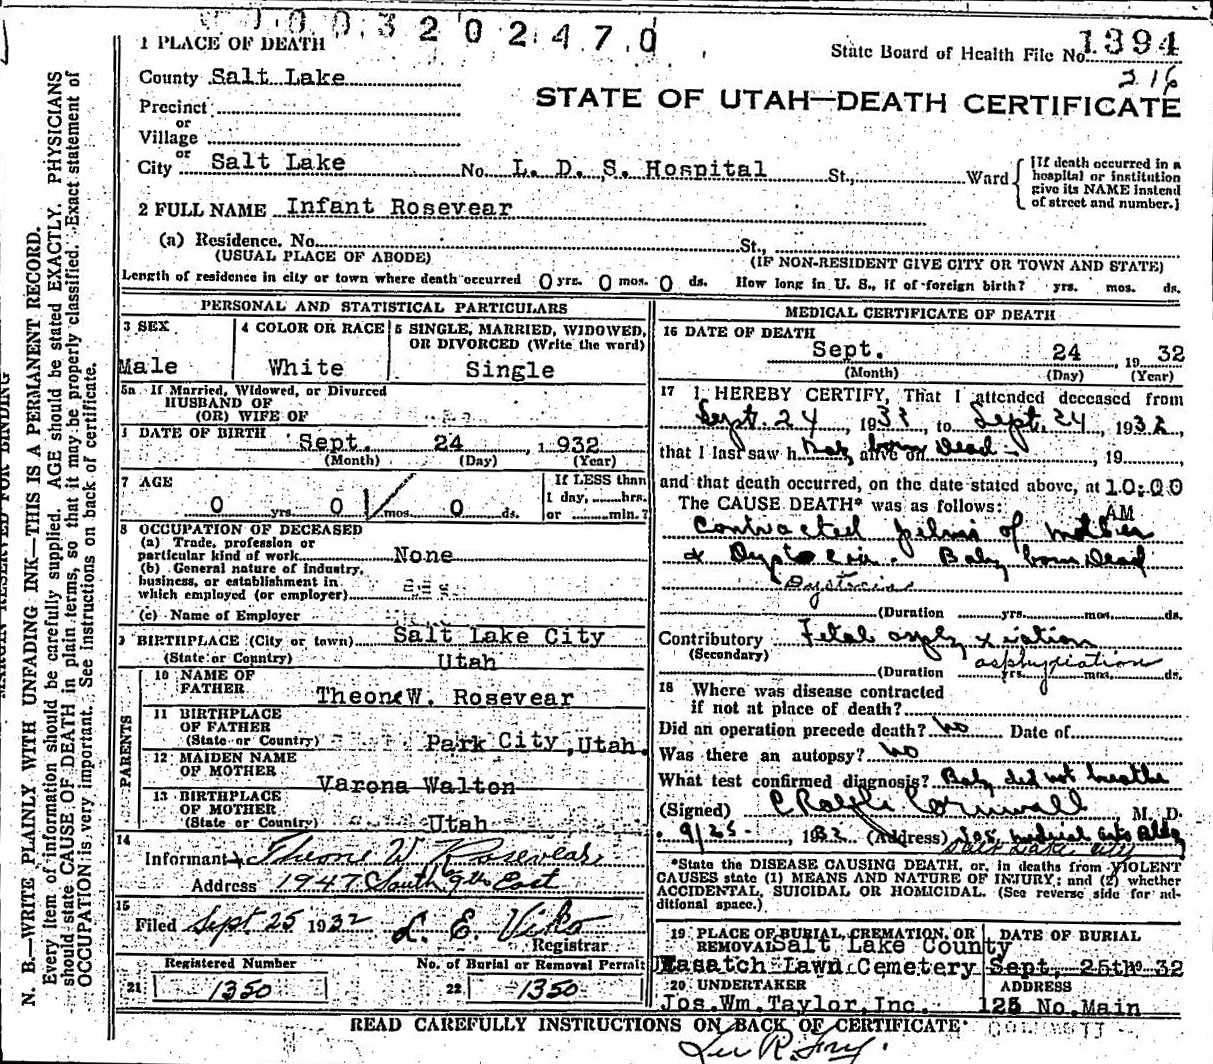 0032024 7 0
1 PLACE OF DEATH
State Board of Health File No. 1394
216
County Salt Lake
STATE OF UTAH—DEATH CERTIFICATE
Precinct
or
Village
or
City Salt Lake No. L. D. S. Hospital St., Ward
[If death occurred in a
hospital or institution
give its NAME instead
of street and number.]
2 FULL NAME Infant Rosevear
(a) Residence. No. St.,
(USUAL PLACE OF ABODE) (IF NON-RESIDENT GIVE CITY OR TOWN AND STATE)
Length of residence in city or town where death occurred 0 yrs. 0 mos. 0 ds. How long in U. S., if of foreign birth? yrs. mos. ds.
PERSONAL AND STATISTICAL PARTICULARS
3 SEX
Male
4 COLOR OR RACE
White
5 SINGLE, MARRIED, WIDOWED,
OR DIVORCED (Write the word)
Single
5a If Married, Widowed, or Divorced
HUSBAND OF
(OR) WIFE OF
DATE OF BIRTH Sept. 24, 1932
(Month) (Day) (Year)
7 AGE
0 yrs. 0 mos. 0 ds.
If LESS than
1 day, hrs.
or min.?
8 OCCUPATION OF DECEASED
(a) Trade, profession or
particular kind of work None
(b) General nature of industry,
business, or establishment in
which employed (or employer)
(c) Name of Employer
9 BIRTHPLACE (City or town) Salt Lake City
(State or Country) Utah
PARENTS
10 NAME OF
FATHER
Theone W. Rosevear
11 BIRTHPLACE
OF FATHER
(State or Country) Park City, Utah.
12 MAIDEN NAME
OF MOTHER
Varona Walton
13 BIRTHPLACE
OF MOTHER
(State or Country) Utah
14
Informant Theone W Rosevear
Address 1947 South 9th East
15
Filed Sept 25 1932 L. E. Viko
Registrar
Registered Number No. of Burial or Removal Permit
21 1350 22 1350
MEDICAL CERTIFICATE OF DEATH
16 DATE OF DEATH
Sept. 24 1932
(Month) (Day) (Year)
17 I HEREBY CERTIFY, That I attended deceased from
Sept. 24, 1932, to Sept. 24, 1932,
that I last saw h Baby alive on born Dead, 19
and that death occurred, on the date stated above, at 10:00
AM
The CAUSE DEATH* was as follows:
Contracted pelvis of mother
& Dystocia. Baby born Dead
Dystocia
(Duration yrs. mos. ds.
Contributory Fetal asphyxiation
(Secondary)
asphyxiation
(Duration yrs. mos. ds.
18 Where was disease contracted
if not at place of death?
Did an operation precede death? no Date of
Was there an autopsy? no
What test confirmed diagnosis? Baby did not breathe
(Signed) C Ralph Cornwall M. D.
9/25-, 1932 (Address) 305 Medical Arts Bldg
Salt Lake City
*State the DISEASE CAUSING DEATH, or, in deaths from VIOLENT
CAUSES state (1) MEANS AND NATURE OF INJURY; and (2) whether
ACCIDENTAL, SUICIDAL OR HOMICIDAL. (See reverse side for ad-
ditional space.)
19 PLACE OF BURIAL, CREMATION, OR
REMOVAL Salt Lake County
Wasatch Lawn Cemetery
DATE OF BURIAL
Sept, 25th 19 32
20 UNDERTAKER
Jos. Wm. Taylor, Inc.
ADDRESS
125 No. Main
READ CAREFULLY INSTRUCTIONS ON BACK OF CERTIFICATE
MARGIN RESERVED FOR BINDING
N. B.—WRITE PLAINLY WITH UNFADING INK—THIS IS A PERMANENT RECORD.
Every item of information should be carefully supplied. AGE should be stated EXACTLY. PHYSICIANS
should state CAUSE OF DEATH in plain terms, so that it may be properly classified. Exact statement of
OCCUPATION is very important. See instructions on back of certificate.